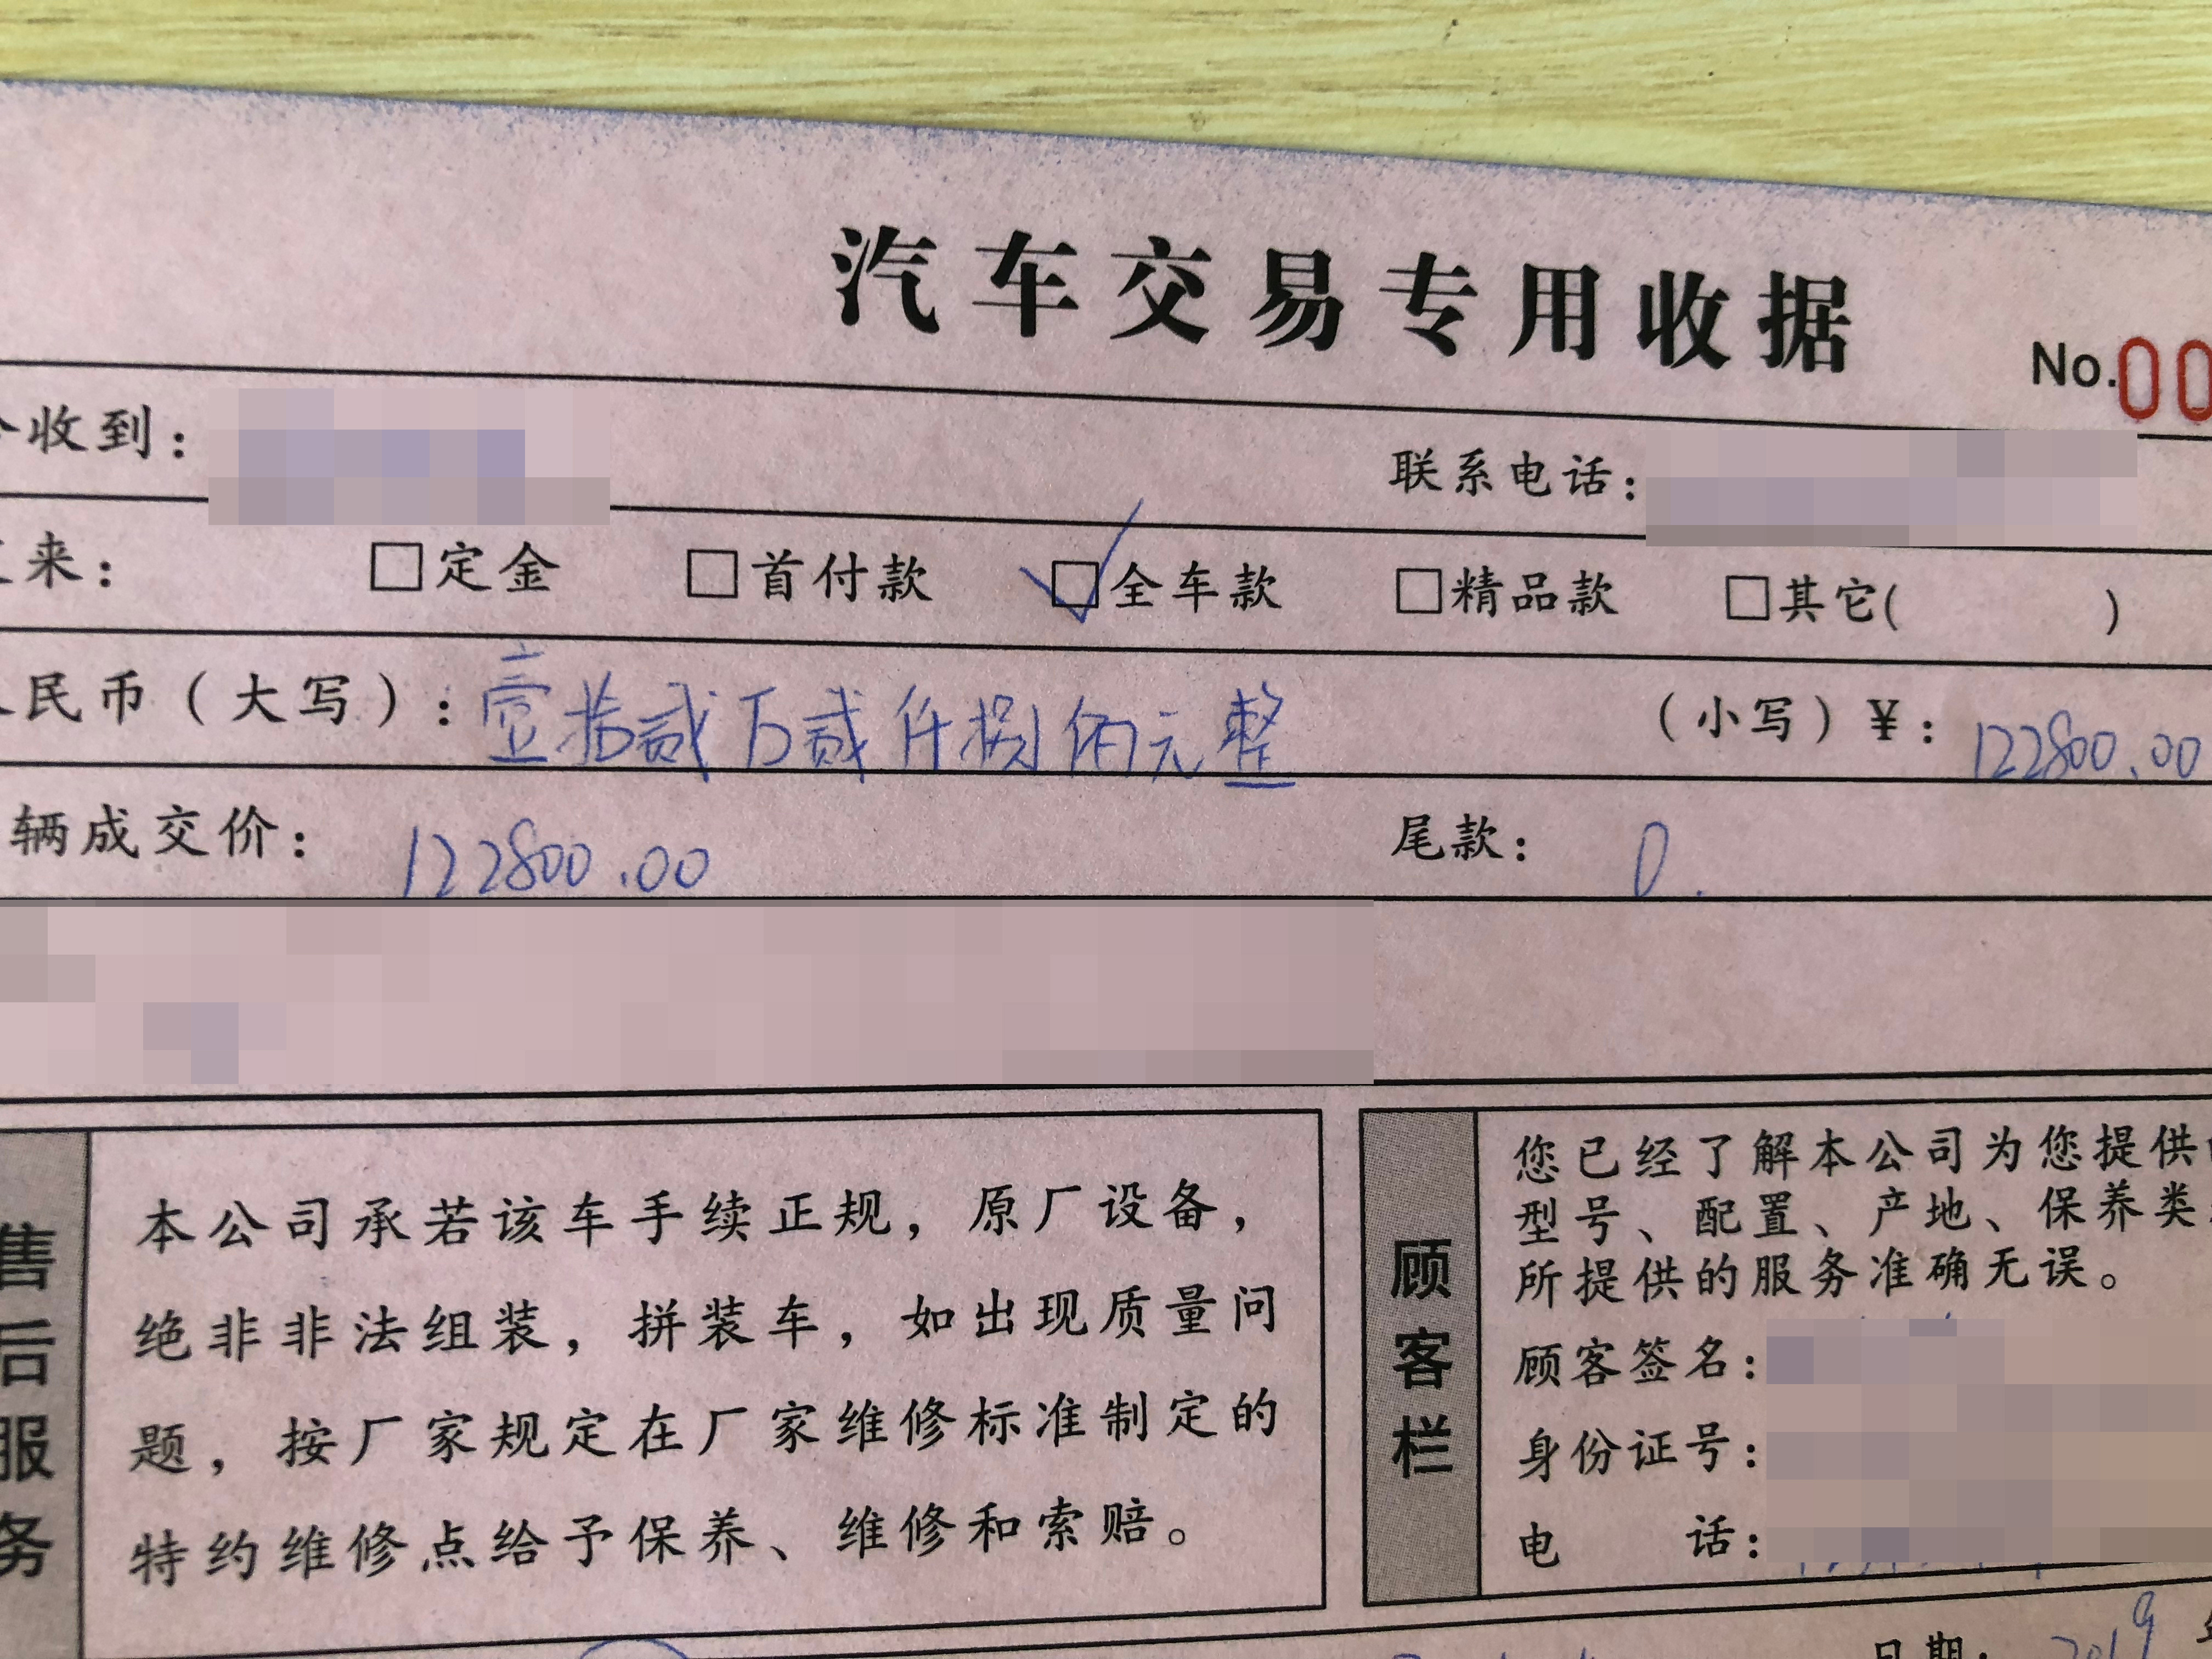 汽车交易专用收据
No.00
收到： 联系电话：
来： □定金 □首付款 ☑全车款 □精品款 □其它( )
民币（大写）：壹拾贰万贰仟捌佰元整 （小写）￥：122800.00
辆成交价： 122800.00 尾款： 0.
售后服务
本公司承若该车手续正规，原厂设备，
绝非非法组装，拼装车，如出现质量问
题，按厂家规定在厂家维修标准制定的
特约维修点给予保养、维修和索赔。
顾客栏
您已经了解本公司为您提供
型号、配置、产地、保养类
所提供的服务准确无误。
顾客签名：
身份证号：
电 话：
日期： 2019